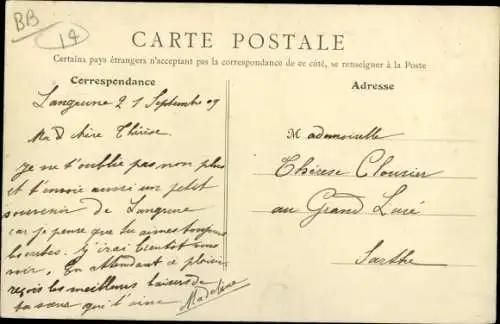 BB
19
CARTE POSTALE
Certains pays étrangers n'acceptant pas la correspondance de ce côté, se renseigner à la Poste
Correspondance
Adresse
Langrune 21 Septembre 09
Ma chère Thérèse
Je ne t'oublie pas non plus
et t'envoie aussi un petit
souvenir de Langrune
car je pense que tu aimes toujours
les cartes. J'irai bientôt vous
voir. En attendant ce plaisir
reçois les meilleurs baisers de
ta sœur qui t'aime
Madeleine
Mademoiselle
Thérèse
au Grand Lucé
Sarthe